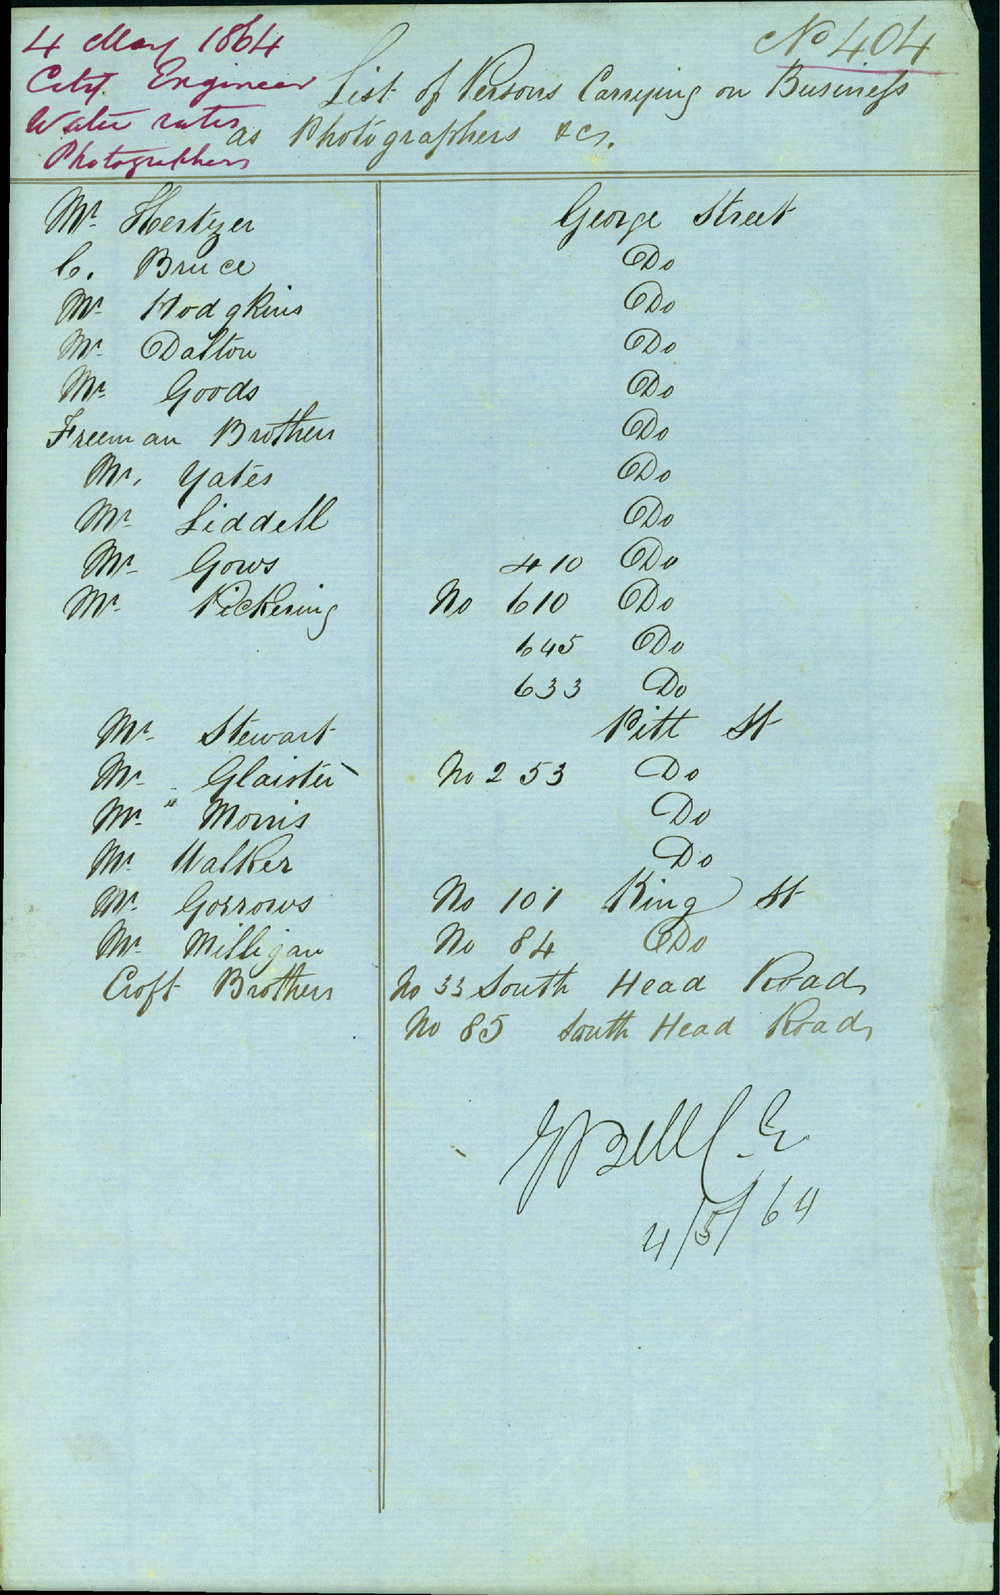 4 May 1864
No 404
City Engineer
Water rates
Photographers
List of Persons Carrying on Business
as Photographers &c.
Mr. Hertzer George Street
C. Bruce Do
Mr. Hodgkins Do
Mr. Dalton Do
Mr. Goods Do
Freeman Brothers Do
Mr. Yates Do
Mr. Liddell Do
Mr. Gows 410 Do
Mr. Pickering No 610 Do
645 Do
633 Do
Mr. Stewart Pitt St
Mr. Glaister No 253 Do
Mr. " Morris Do
Mr. Walker Do
Mr. Gorrows No 101 King St
Mr. Milligan No 84 Do
Croft Brothers No 33 South Head Road
No 85 South Head Road
Bell C.E
4/5/64